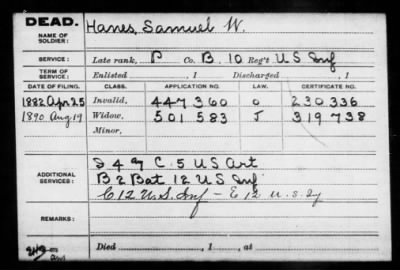 DEAD.
NAME OF SOLDIER:
Hanes, Samuel W.
SERVICE:
Late rank, P Co. B. 10 Reg't U S Inf
TERM OF SERVICE:
Enlisted , 1 Discharged , 1
DATE OF FILING. CLASS. APPLICATION NO. LAW. CERTIFICATE NO.
1882 Apr 25 Invalid, 447360 230336
1890 Aug 19 Widow, 501583 J 319738
Minor,
ADDITIONAL SERVICES:
C. 5 U S Art
B 2 Bat 12 U S Inf
C. 12 U.S. Inf - E 12 U.S. Inf
REMARKS:
Died , 1 , at